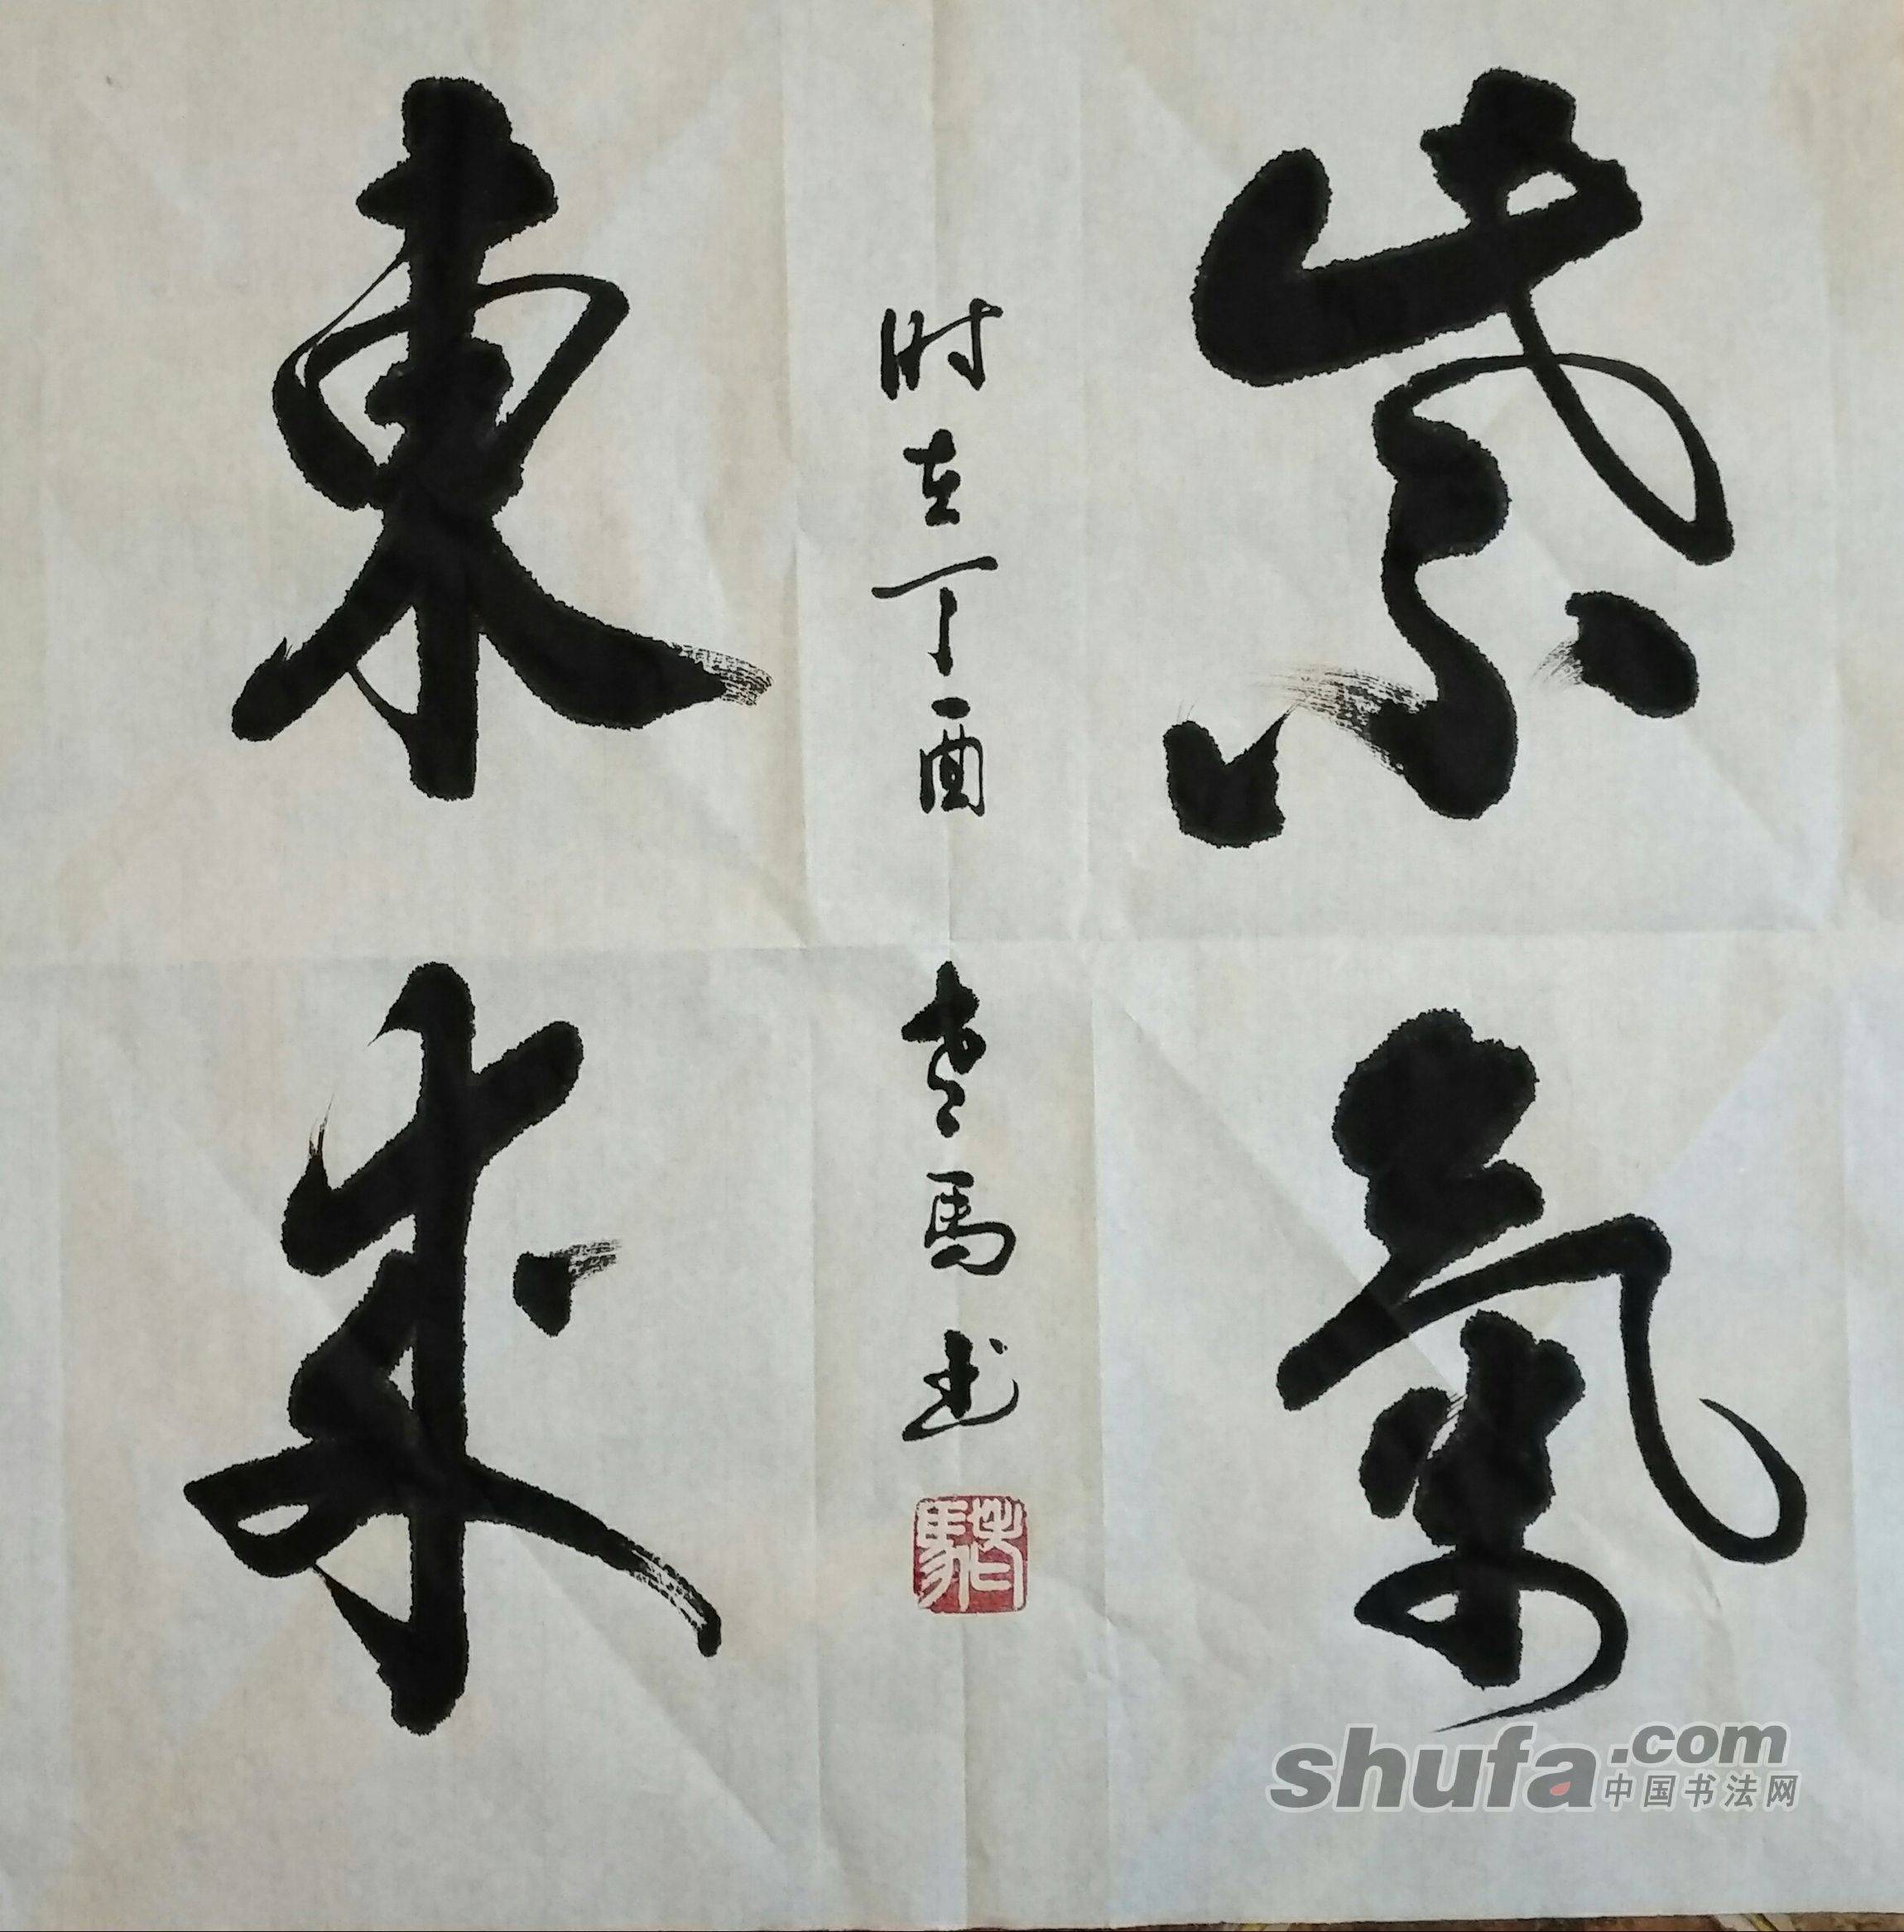 紫氣
東來
时在丁酉
老馬书
shufa.com
中国书法网